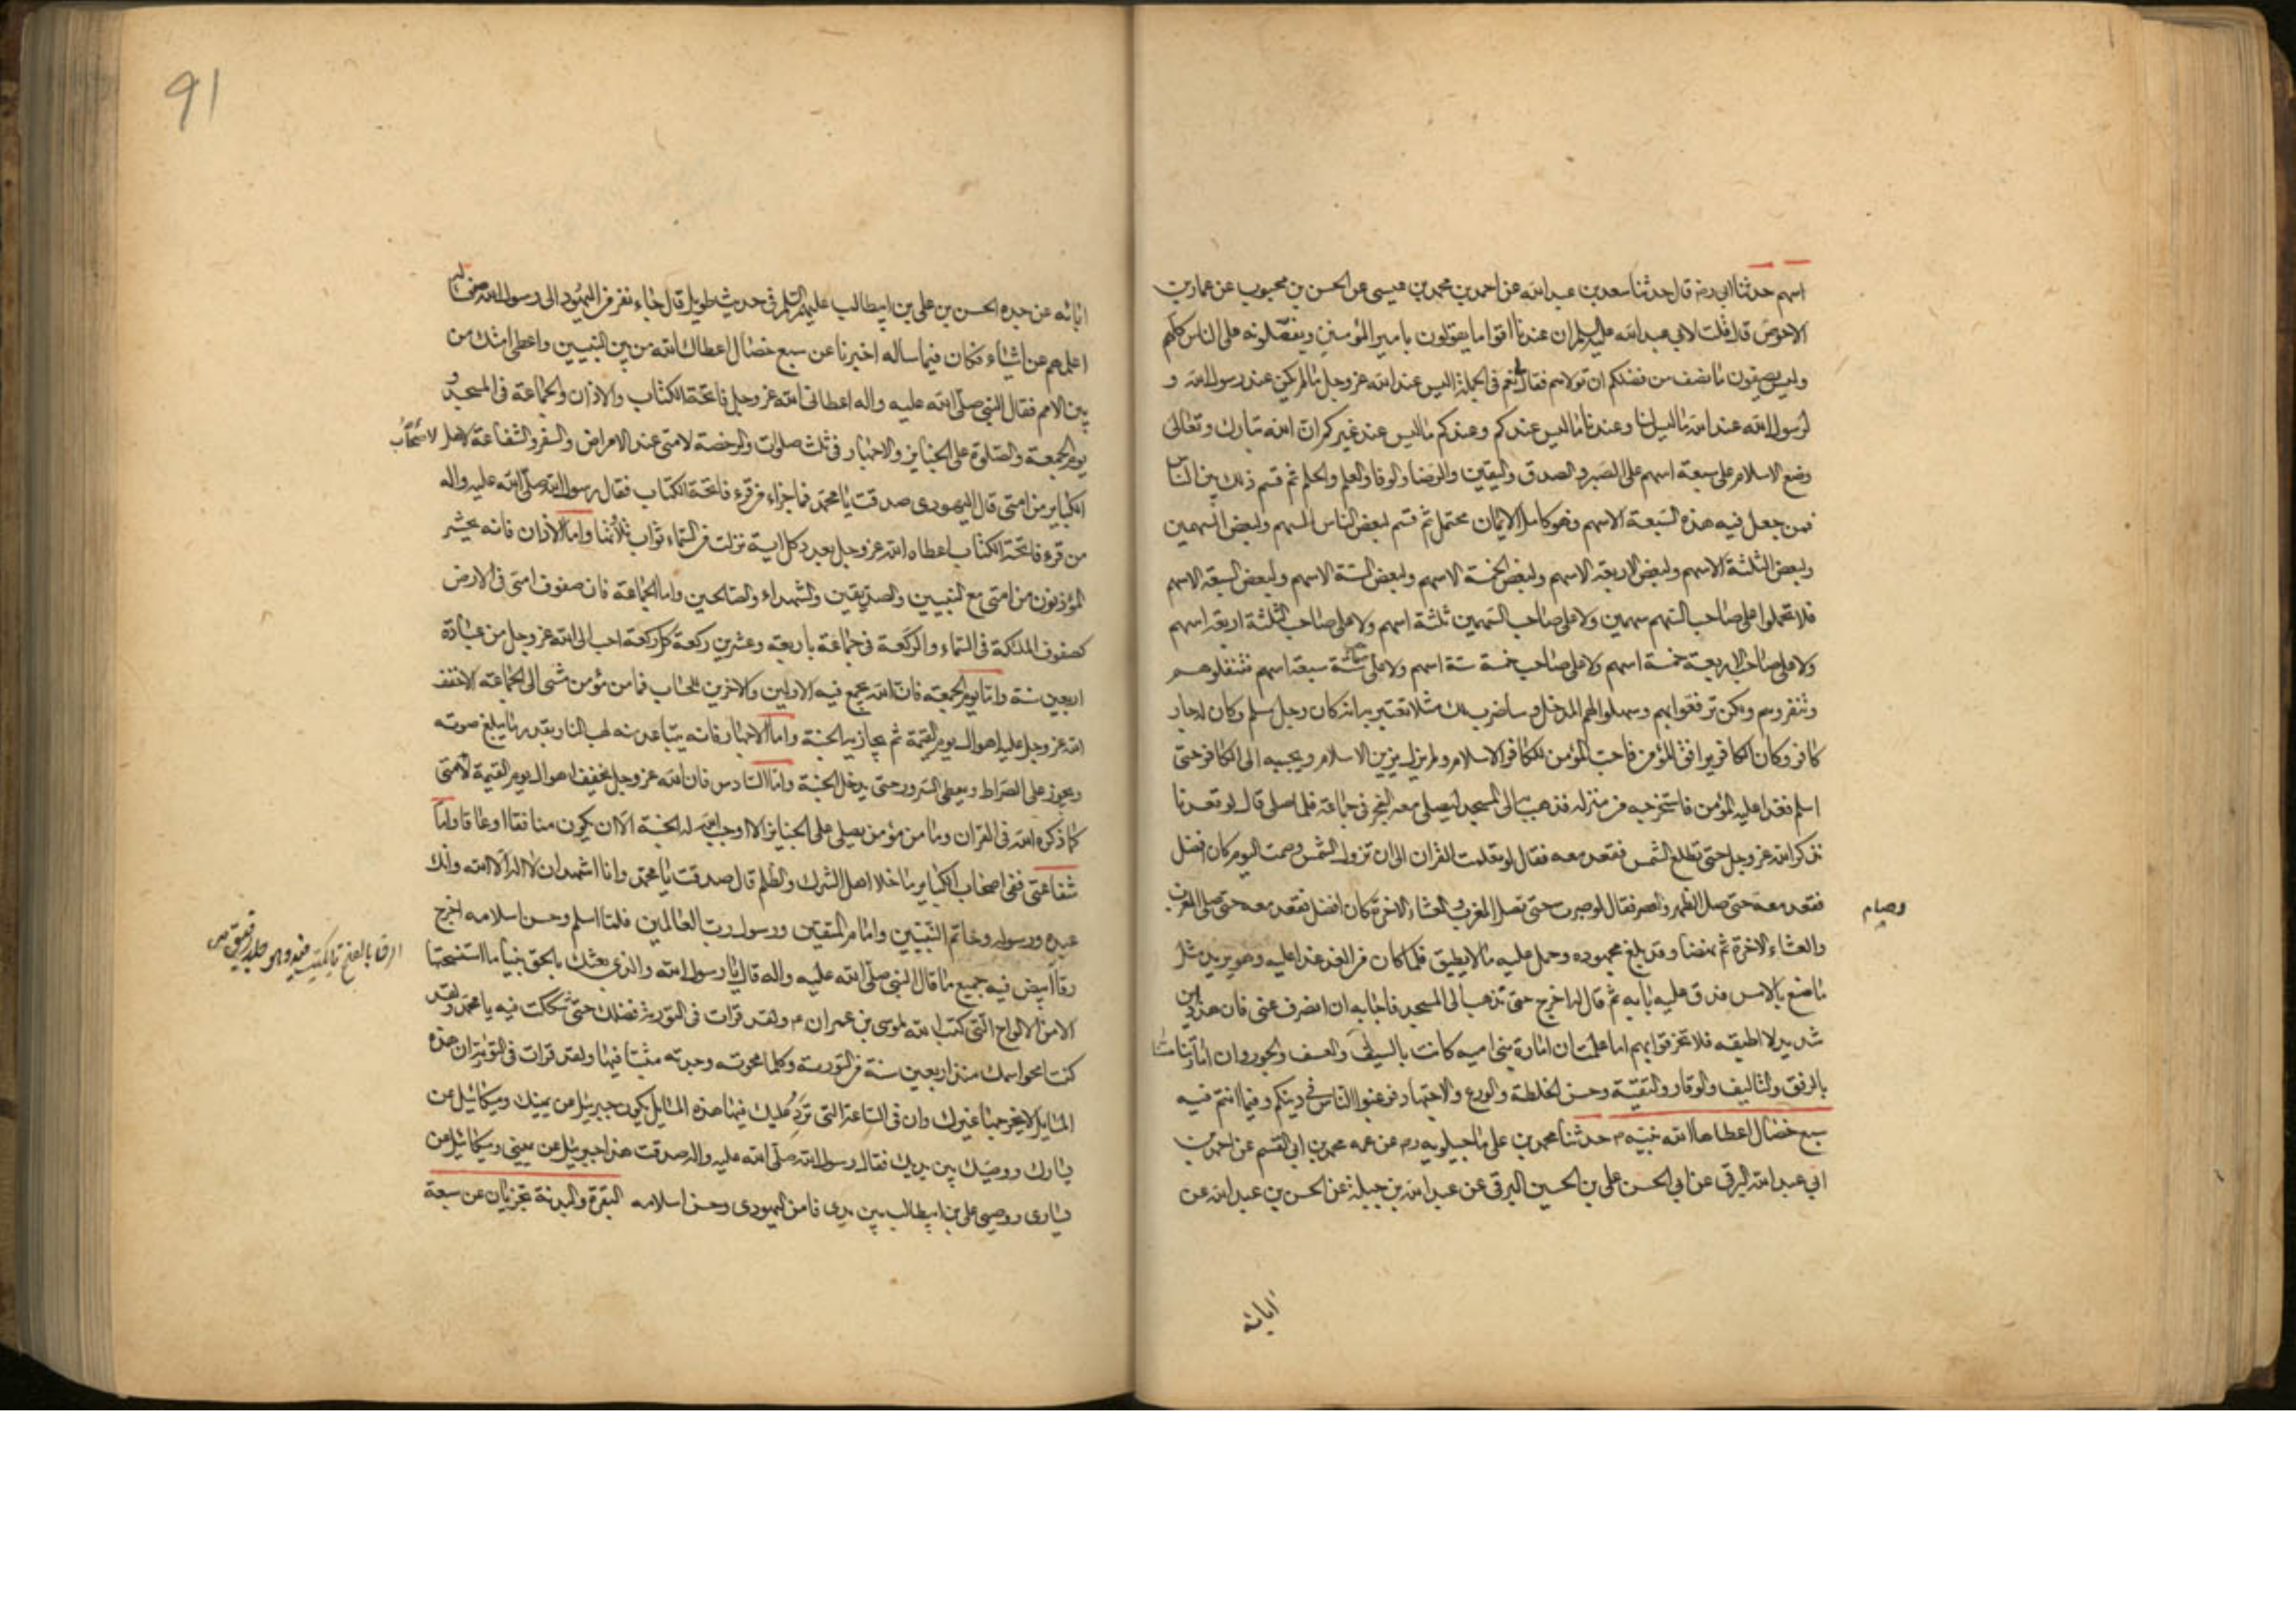 اسهم حدثنا ابي رض قال حدثنا سعد بن عبد الله عن احمد بن محمد بن عيسى عن الحسن بن محبوب عن عمار بن
الاحوص قال قلت لابي عبد الله عليه السلم ان عندنا اقواما يقولون بامير المؤمنين ويفضلونه على الناس كلهم
وليس يصفون ما نصف من فضلكم ان تولاهم فقال نعم في الجملة اليس عند الله عز وجل ما لم يكن عند رسول الله و
لرسول الله عند الله ما ليس لنا وعندنا ما ليس عندكم وعندكم ما ليس عند غيركم ان الله تبارك وتعالى
وضع الاسلام على سبعة اسهم على الصبر والصدق واليقين والرضا والوفا والعلم والحلم ثم قسم ذلك بين الناس
فمن جعل فيه هذه السبعة الاسهم فهو كامل الايمان محتمل ثم قسم لبعض الناس السهم ولبعض السهمين
ولبعض الثلثة الاسهم ولبعض الاربعة الاسهم ولبعض الخمسة الاسهم ولبعض الستة الاسهم ولبعض السبعة الاسهم
فلا تحملوا على صاحب السهم سهمين ولا على صاحب السهمين ثلثة اسهم ولا على صاحب الثلثة اربعة اسهم
ولا على صاحب الاربعة خمسة اسهم ولا على صاحب خمسة ستة اسهم ولا على صاحب ستة سبعة اسهم فتثقلوهم
وتنفروهم ولكن ترفقوا بهم وسهلوا لهم المدخل وساضرب لك مثلا تعتبر به انه كان رجل مسلم وكان له جار
كافر وكان الكافر يوافق المؤمن فاحب المؤمن للكافر الاسلام ولم يزل يزين الاسلام ويحببه الى الكافر حتى
اسلم فغدا عليه المؤمن فاستخرجه من منزله فذهب به الى المسجد ليصلي معه الفجر في جماعة فلما صلى قال لو قعدنا
نذكر الله عز وجل حتى تطلع الشمس فقعد معه فقال لو تعلمت القران الى ان تزول الشمس وصمت اليوم كان افضل
فقعد معه حتى صلى الظهر والعصر فقال لو صبرت حتى تصلي المغرب والعشاء الاخرة كان افضل فقعد معه حتى صلى المغرب
وصام
والعشاء الاخرة ثم نهضا وقد بلغ مجهوده وحمل عليه ما لا يطيق فلما كان من الغد غدا عليه وهو يريد مثل
ما صنع بالامس فدق عليه بابه ثم قال له اخرج حتى نذهب الى المسجد فاجابه ان انصرف عني فان هذا دين
شديد لا اطيقه فلا تخرقوا بهم اما علمت ان امارة بني اميه كانت بالسيف والعسف والجور وان امامتنا
بالرفق والتاليف والوقار والتقية وحسن الخلطة والورع والاجتهاد فرغبوا الناس في دينكم وفيما انتم فيه
سبع خصال اعطاها الله نبيه م حدثنا محمد بن علي ماجيلويه رض عن عمه محمد بن ابي القسم عن احمد بن
ابي عبد الله البرقي عن ابي الحسن علي بن الحسين البرقي عن عبد الله بن جبلة عن الحسن بن عبد الله عن
ابائه
91
ابائه عن جده الحسن بن علي بن ابيطالب عليهم السلم في حديث طويل قال جاء نفر من اليهود الى رسول الله فساله
اعلمهم عن اشياء فكان فيما ساله اخبرنا عن سبع خصال اعطاك الله من بين النبيين واعطى امتك من
بين الامم فقال النبي صلى الله عليه واله اعطاني الله عز وجل فاتحة الكتاب والاذان والجماعة في المسجد و
يوم الجمعة والصلوة على الجنايز والاجهار في ثلث صلوات والرخصة لامتي عند الامراض والسفر والشفاعة لاهل لاصحاب
الكباير من امتي قال اليهودي صدقت يا محمد فما جزاء من قرء فاتحة الكتاب فقال رسول الله صلى الله عليه واله
من قرء فاتحة الكتاب اعطاه الله عز وجل بعدد كل اية نزلت من السماء ثواب تلاوتها واما الاذان فانه يحشر
المؤذنون من امتي مع النبيين والصديقين والشهداء والصالحين واما الجماعة فان صفوف امتي في الارض
كصفوف الملئكة في السماء والركعة في جماعة باربعة وعشرين ركعة كل ركعة احب الى الله عز وجل من عبادة
اربعين سنة واما يوم الجمعة فان الله يجمع فيه الاولين والاخرين للحساب فما من مؤمن مشى الى الجماعة الا خفف
الله عز وجل عليه اهوال يوم القيمة ثم يجازيه الجنة واما الاجهار فانه يتباعد منه لهب النار بقدر ما يبلغ صوته
ويجوز على الصراط ويعطى السرور حتى يدخل الجنة واما السادس فان الله عز وجل يخفف اهوال يوم القيمة لامتي
كما ذكره الله في القران وما من مؤمن يصلي على الجنايز الا اوجب الله له الجنة الا ان يكون منافقا او عاقا واما
شفاعتي ففي اصحاب الكباير ما خلا اهل الشرك والظلم قال صدقت يا محمد وانا اشهد ان لا اله الا الله وانك
عبده ورسوله وخاتم النبيين وامام المتقين ورسول رب العالمين فلما اسلم وحسن اسلامه اخرج
رقا ابيض فيه جميع ما قال النبي صلى الله عليه واله قال يا رسول الله والذي بعثك بالحق نبيا ما استنسختها
الرق بالفتح ما يكتب فيه وهو جلد رقيق ص
الا من الالواح التي كتب الله لموسى بن عمران م ولقد قرات في التورية فضلك حتى شككت فيه يا محمد ولقد
كنت امحو اسمك منذ اربعين سنة من التورية وكلما محوته وجدته مثبتا فيها ولقد قرات في التورية ان هذه
المسايل لا يخرجها غيرك وان في الساعة التي ترد عليك فيها هذه المسايل يكون جبرئيل عن يمينك وميكائيل عن
يسارك ووصيك بين يديك فقال رسول الله صلى الله عليه واله صدقت هذا جبرئيل عن يميني وميكائيل عن
يساري ووصيي علي بن ابيطالب بين يدي فامن اليهودي وحسن اسلامه البقرة والبدنة تجزيان عن سبعة